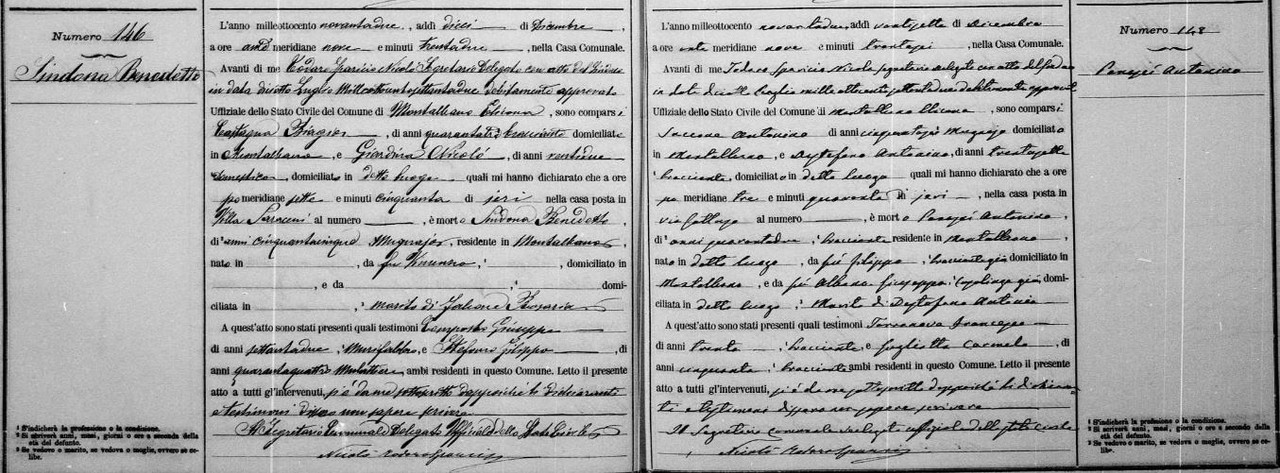 Numero 146
Sindona Benedetto
L'anno milleottocento novantadue, addì dieci di Dicembre
a ore anti meridiane nove e minuti trentadue, nella Casa Comunale.
Avanti di me Todaro Sparicio Nicolò Segretario Delegato con atto del Sindaco
in data Luglio Milleottocentosettantadue debitamente approvato
Uffiziale dello Stato Civile del Comune di Montalbano Elicona, sono comparsi
Castagna Biagio, di anni quarantatre bracciante domiciliato
in Montalbano, e Giardina Nicolò, di anni
domestico, domiciliato in detto luogo quali mi hanno dichiarato che a ore
po meridiane sette e minuti cinquanta di jeri nella casa posta in
Villa Saraceni al numero , è morto Sindona Benedetto
di anni cinquantacinque Mugnajo, residente in Montalbano
nato in , da fu , domiciliato in
, e da domi-
ciliata in ; marito di Rosaria
A quest'atto sono stati presenti quali testimoni Composto Giuseppe
di anni settantadue, Murifabbro, e Stefano Filippo, di
anni quarantaquattro Mulattiere ambi residenti in questo Comune. Letto il presente
atto a tutti gl'intervenuti, si è da me sottoscritto dappoiché li dichiaranti
e testimoni dissero non sapere scrivere
Il Segretario Comunale Delegato Uffiziale dello Stato Civile
Nicolò Todaro Sparicio
¹ S'indicherà la professione o la condizione.
² Si scriverà anni, mesi, giorni o ore a seconda della
età del defunto.
³ Se vedovo o marito, se vedova o moglie, ovvero se ce-
libe.
L'anno milleottocento novantadue, addì ventisette di Dicembre
a ore anti meridiane nove e minuti trentasei, nella Casa Comunale.
Avanti di me Todaro Sparicio Nicolò Segretario delegato con atto del Sindaco
in data Luglio mille ottocento settantadue debitamente approvato
Uffiziale dello Stato Civile del Comune di Montalbano Elicona, sono comparsi
Saccone Antonino di anni cinquantasei Mugnajo domiciliato
in Montalbano e Destefano Antonino, di anni trentasette
bracciante, domiciliato in detto luogo quali mi hanno dichiarato che a ore
po meridiane tre e minuti quaranta di jeri, nella casa posta in
via al numero , è morto Antonino
di anni quarantadue, bracciante residente in Montalbano
nato in detto luogo, da fu Filippo, bracciante domiciliato in
Montalbano, e da fu Albano Giuseppa, domi-
ciliata in detto luogo; Marito di Destefano Antonia
A quest'atto sono stati presenti quali testimoni Terranova Francesco
di anni trenta, bracciante, e Foglietta Carmelo, di
anni cinquanta, bracciante ambi residenti in questo Comune. Letto il presente
atto a tutti gl'intervenuti, si è da me sottoscritto dappoiché li dichiaran
ti e testimoni dissero non sapere scrivere
Il Segretario comunale delegato uffiziale dello stato civile
Nicolò Todaro Sparicio
Numero 148
Antonino
¹ S'indicherà la professione o la condizione.
² Si scriverà anni, mesi, giorni o ore a seconda della
età del defunto.
³ Se vedovo o marito, se vedova o moglie, ovvero se ce-
libe.